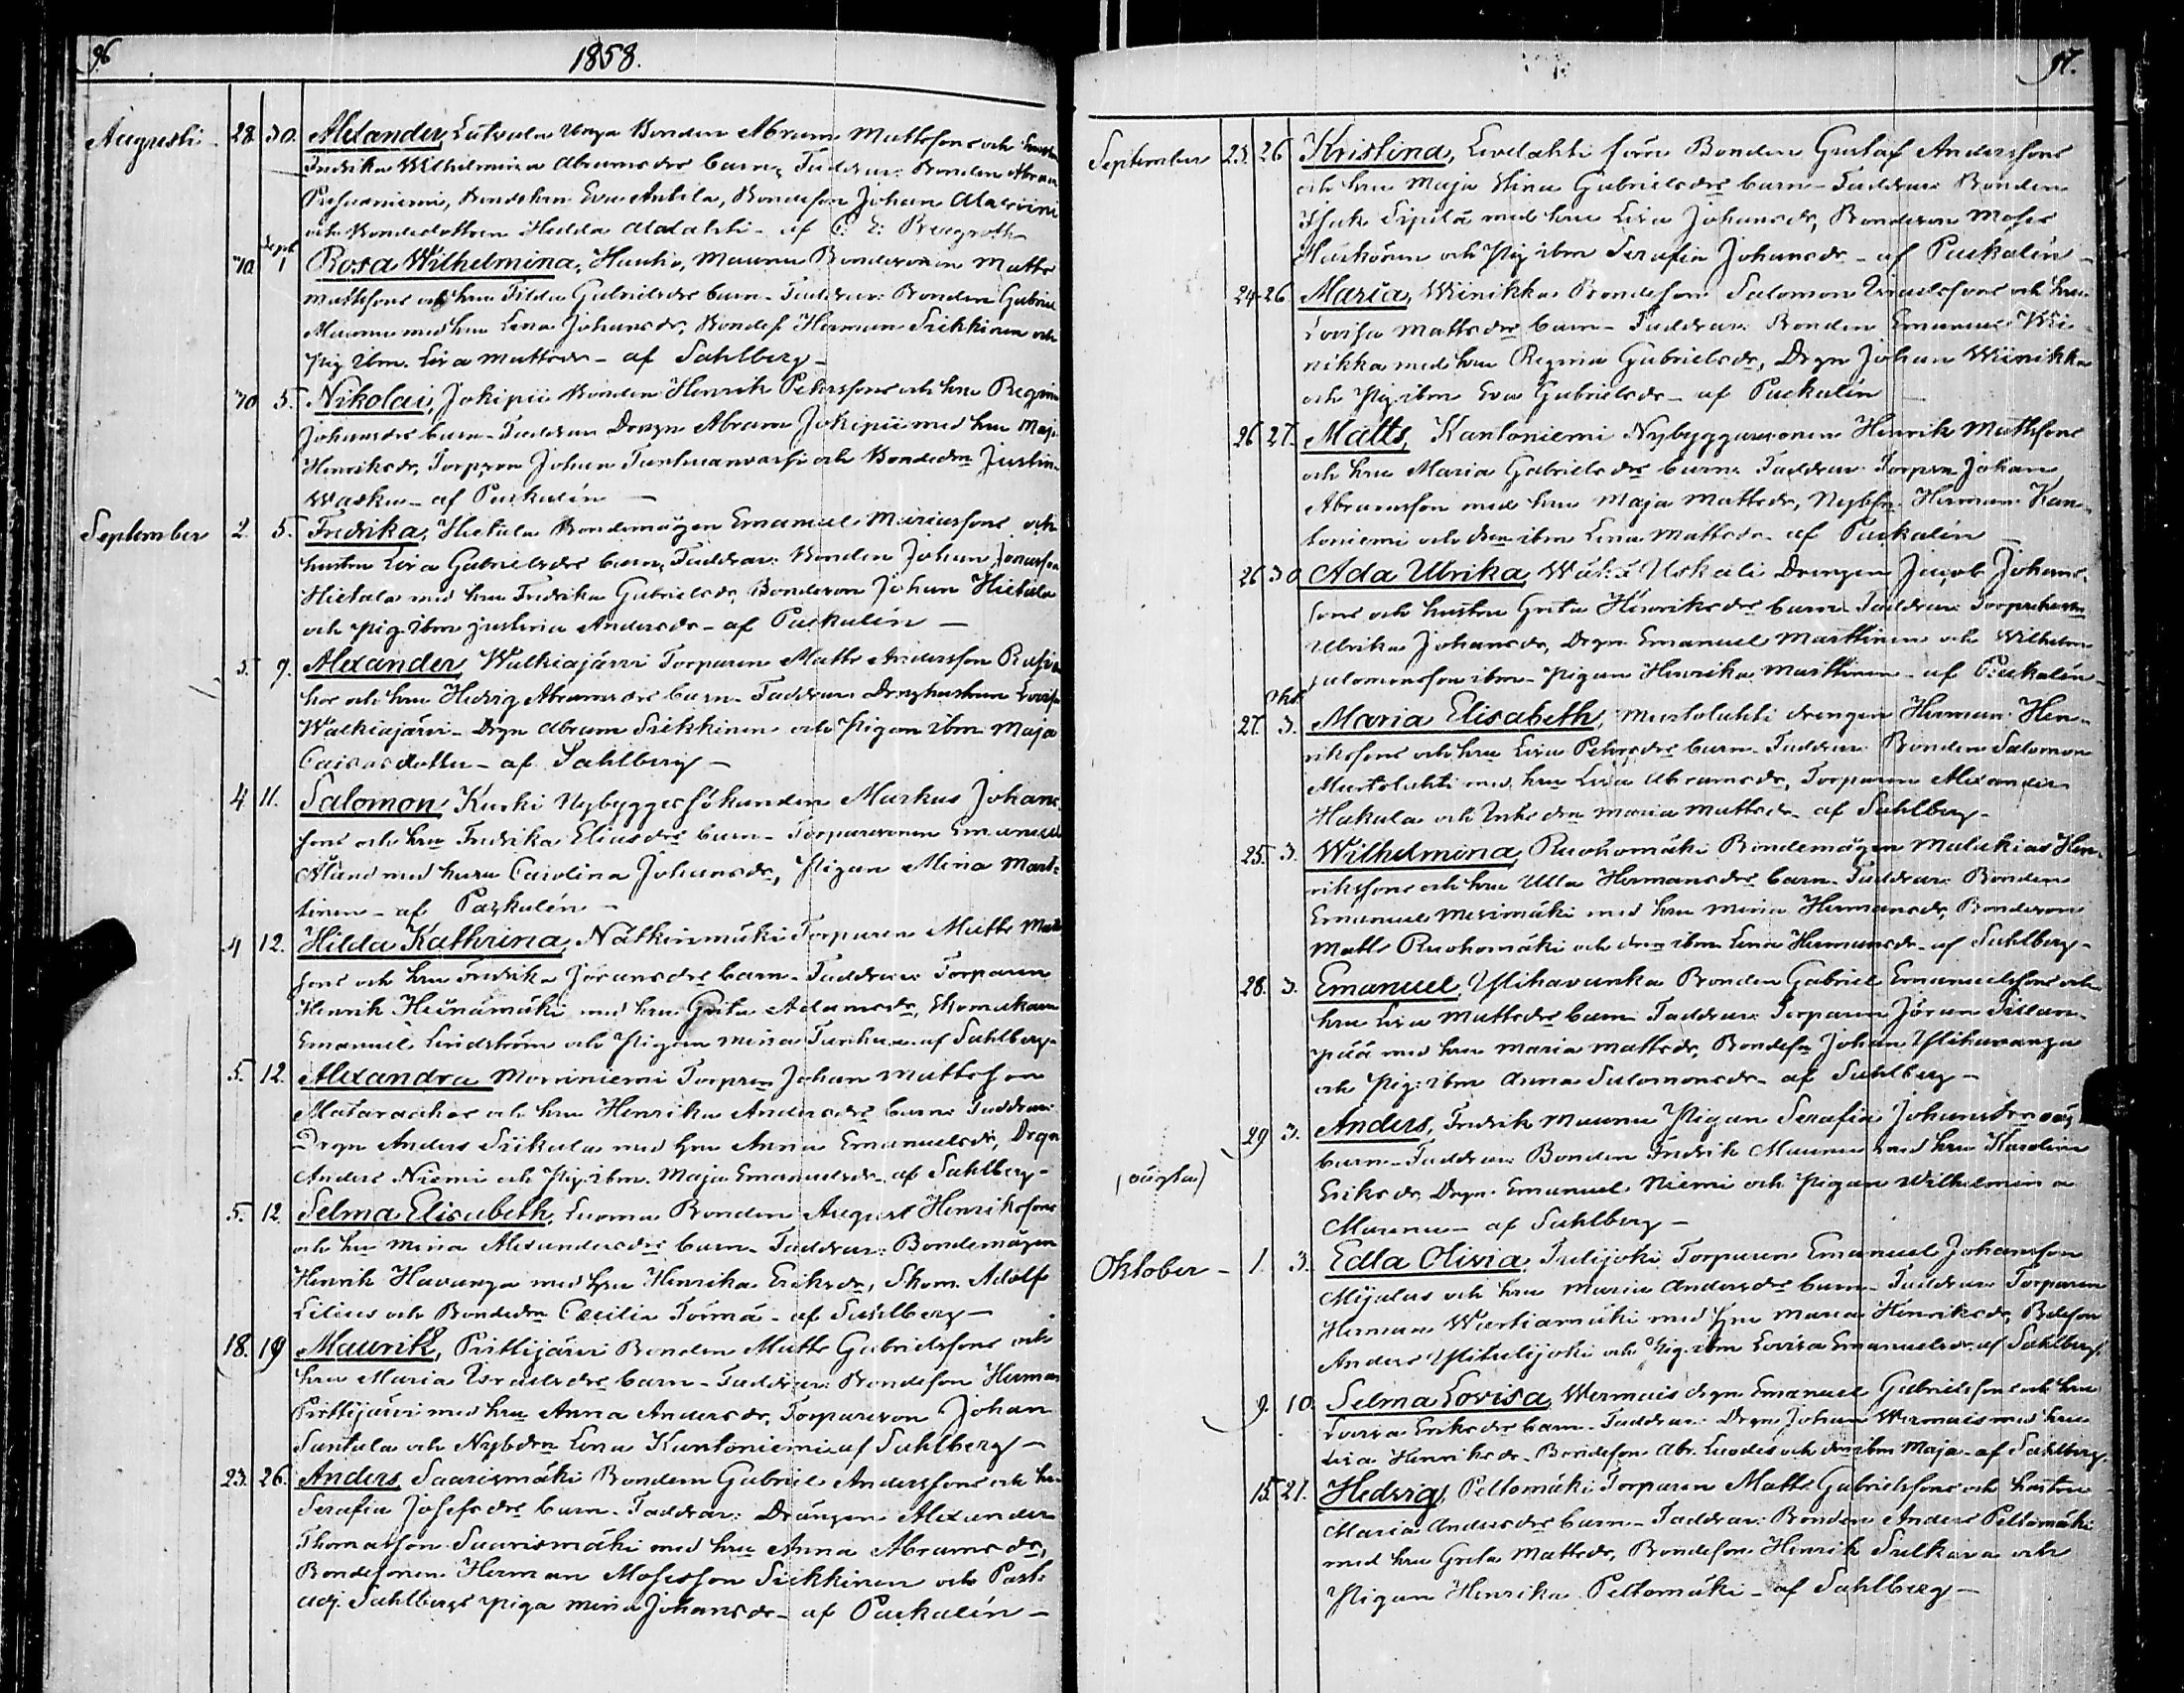 96
1858.
Augusti
28. 30. Alexander, Bonden Abram Mattssons och
Fredrika Wilhelmina Abramsdrs barn, Faddrar: Bonden Abram
Bondehn Eva Antila, Bondeson Johan
och Bondedottren Hedda af C. E. Bergroth
30 Sept 1 Rosa Wilhelmina, Mauna Bondesonen Matts
Mattssons och hru Tilda Gabrielsdrs barn. Faddrar: Bonden Gabriel
Mauna med hru Lena Johansdr, Bondes. Herman Sikkinen och
Pig. ibm. Lisa Mattsdr - af Sahlberg
30 5. Nikolai, Jokipii Bonden Henrik Petersons och hru Regina
Johansdrs barn. Faddrar Drngn Abram Jokipii med hru Maja
Henriksdr, Torprson Johan och Bondedrn Justina
Waska - af Paekalén
September 2. 5. Fredrika, Hietala Bondemågen Emanuel och
hustru Lisa Gabrielsdrs barn, Faddrar: Bonden Johan
Hietala med hru Fredrika Gabrielsdr, Bondeson Johan Hietala
och pig. ibm Justina Andersdr - af Paekalén
3. 9. Alexander, Walkiajärvi Torparen Matts Andersson
och hru Hedvig Abramsdrs barn. Faddrar Drnghustrun Lovisa
Walkiajärvi - Drgn Abram Sikkinen och Pigan ibm Maja
Caisasdotter - af Sahlberg
4 11. Salomon, Kuski Nybyggessökanden Markus Johans
sons och hru Fredrika Eliasdrs barn - Torparesonen Emanuel
Åland med hustru Carolina Johansdr, Pigan Mina Mart-
tinen - af Paekalén
4 12. Hilda Kathrina, Nätkinmäki Torparen Matts Matts
sons och hru Fredrika Jöransdrs barn - Faddrar Torparen
Henrik Heinämäki med hru Greta Adamsdr, Skomakaren
Emanuel Lindström och Pigan Mina af Sahlberg
5. 12. Alexandra Torprn Johan Mattsson
och hru Henrika Andersdrs barn. Faddrar:
Drgn Anders Siikala med hru Anna Emanuelsdr, Drgn
Anders Niemi och Pig. ibm. Maja Emanuelsdr - af Sahlberg
5. 12 Selma Elisabeth, Luoma Bonden August Henrikssons
och hru Mina Alexandersdrs barn - Faddrar: Bondemågen
Henrik Havanga med hru Henrika Eriksdr, Skom. Adolf
Lilius och Bondedrn Cecilia Törmä - af Sahlberg
18. 19 Maurits, Pirttijärvi Bonden Matts Gabrielssons och
hru Maria Israelsdrs barn - Faddrar: Bondeson Herman
Pirttijärvi med hru Anna Andersdr, Torpareson Johan
Santala och Nybdrn Lena Kantoniemi af Sahlberg
23. 26. Anders, Saarismäki Bonden Gabriel Anderssons och hru
Serafia Josefsdrs barn - Faddrar: Drängen Alexander
Thomasson Saarismäki med hru Anna Abramsdr,
Bondesonen Herman Mosesson Sikkinen och Past.
adj. Sahlbergs piga Mina Johansdr - af Paekalén
97.
September 23. 26 Kristina, Bonden Gustaf Anderssons
och hru Maja Stina Gabrielsdrs barn - Faddrar Bonden
Isak Sipilä med hru Lisa Johansdr, Bondeson Moses
och Pig ibm Serafia Johansdr - af Paekalén
24. 26 Maria, Wiinikka Bondeson Salomon Israelssons och hru
Lovisa Mattsdrs barn - Faddrar: Bonden Emanuel Wii-
nikka med hru Regina Gabrielsdr, Drgn Johan Wiinikka
och Pig. ibm Eva Gabrielsdr - af Paekalén
26 27. Matts, Kantoniemi Nybyggaresonen Henrik Mattssons
och hru Maria Gabrielsdrs barn. Faddrar Torprn Johan
Abramsson med hru Maja Mattsdr, Nybsn Herman Kan-
toniemi och drn ibm Lena Mattsdr - af Paekalén
26 30 Ada Ulrika, Wähä Uskali Drengen Jacob Johans-
sons och hustru Greta Henriksdrs barn. Faddrar: Torparehustrn
Ulrika Johansdr, Drgn Emanuel Marttinen och Wilhelm
Salomonsson ibm - Pigan Henrika Marttinen - af Paekalén
27. Okt. 3. Maria Elisabeth, Mustolahti drengen Herman Hen-
rikssons och hru Lisa Pehrsdrs barn - Faddrar Bonden Salomon
Mustolahti med hru Lisa Abramsdr, Torparen Alexander
Hakala och Maria Mattsdr - af Sahlberg
25. 3. Wilhelmina, Ruohomäki Bondemågen Malakias Hen-
rikssons och hru Ulla Hermansdrs barn - Faddrar: Bonden
Emanuel Mesimäki med hru Maria Hermansdr, Bondeson
Matts Ruohomäki och drn ibm Lena Hermansdr - af Sahlberg
28. 3. Emanuel, Ylihavanka Bonden Gabriel Emanuelssons och
hru Lisa Mattsdrs barn - Faddrar Torparen Jöran Sillan-
pää med hru Maria Mattsdr, Bondesn Johan Ylihavanga
och Pig: ibm Anna Salomonsdr - af Sahlberg
(oägta) 29 3. Anders, Fredrik Mauna Pigan Serafia Johansdrs oäg.
barn - Faddrar: Bonden Fredrik Mauna med hru Karolina
Eriksdr, Drgn. Emanuel Niemi och Pigan Wilhelmina
Mauna - af Sahlberg
Oktober - 1. 3. Edla Olivia, Torparen Emanuel Johansson
och hru Maria Andersdrs barn - Faddrar Torparen
Herman med hru Maria Henriksdr, Bdeson
Anders och Pig. ibm Lovisa Emanuelsdr af Sahlberg
9. 10. Selma Lovisa, Wermais drgn Emanuel Gabrielssons och hru
Lovisa Eriksdrs barn - Faddrar: Drgn Johan Wermais med hru
Lisa Henriksdr - Bondeson Abr. Luodes och drn ibm Maja - af Sahlberg
15. 21. Hedvig, Peltomäki Torparen Matts Gabrielssons och hustru
Maria Andersdrs barn - Faddrar: Bonden Anders Peltomäki
med hru Greta Mattsdr, Bondeson Henrik Sulkava och
Pigan Henrika Peltomäki - af Sahlberg